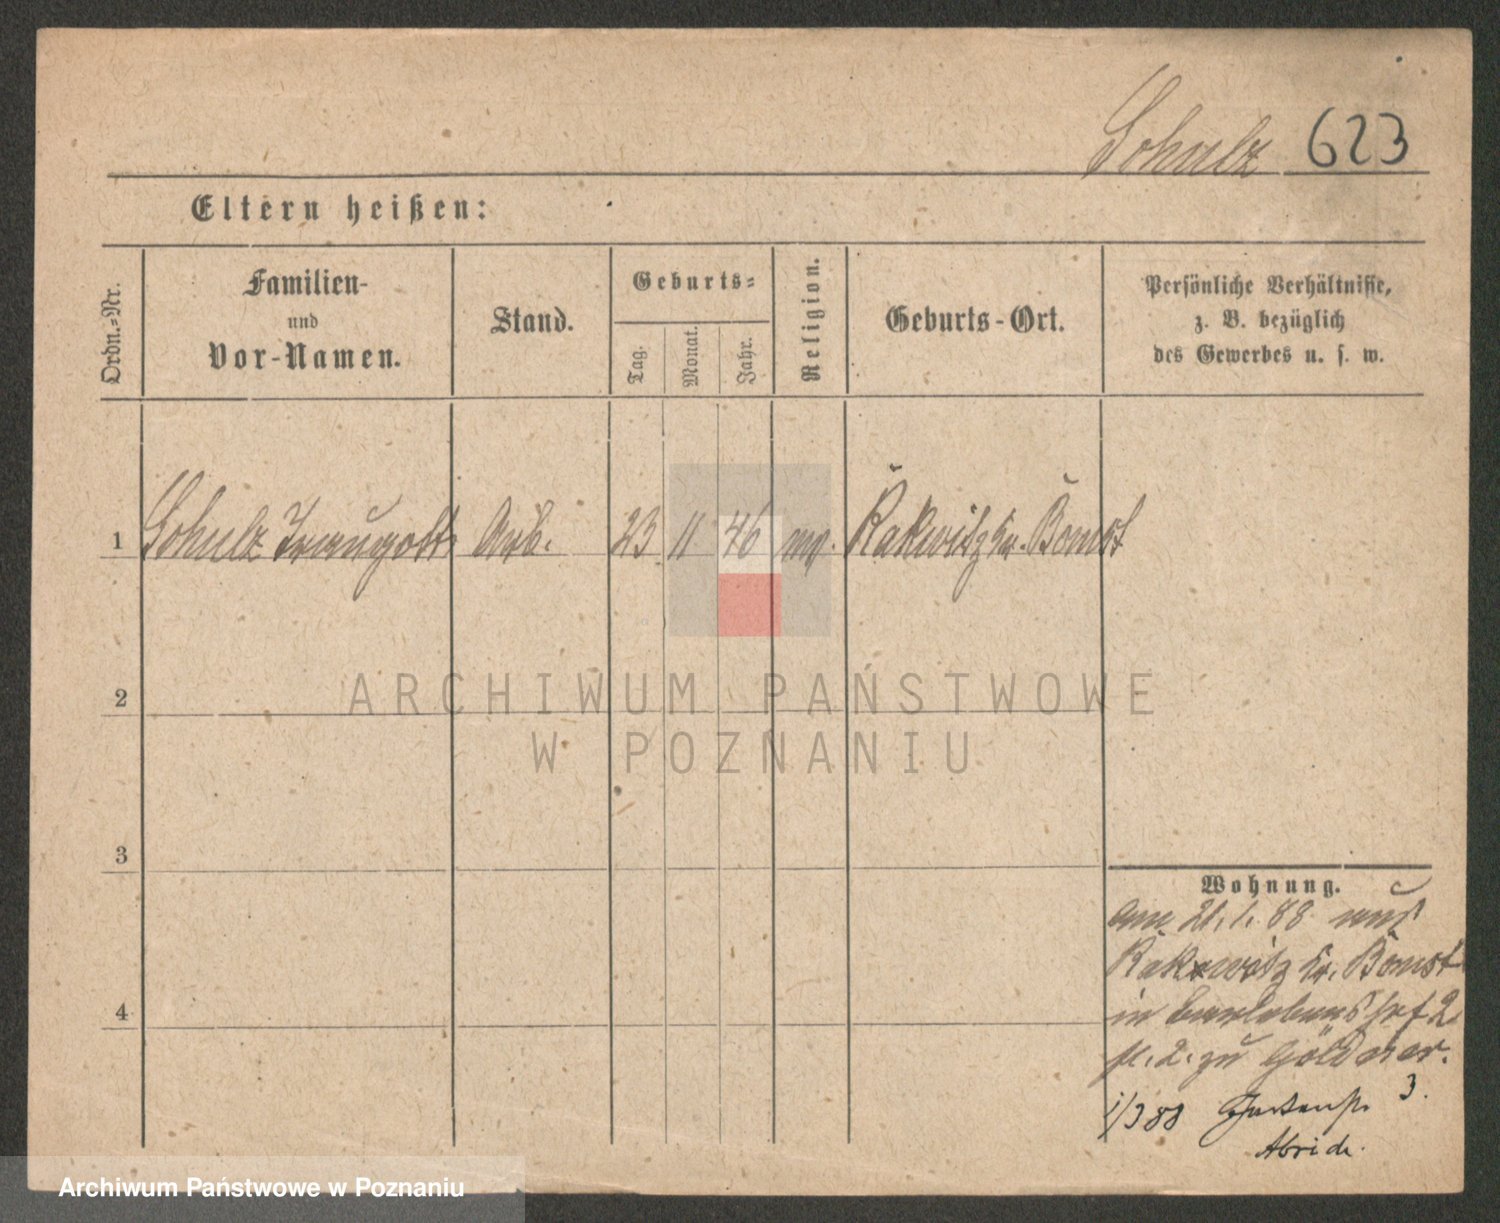 Schulz 623
Eltern heißen:
Ordn.-Nr.
Familien-
und
Vor-Namen.
Stand.
Geburts-
Tag.
Monat.
Jahr.
Religion.
Geburts-Ort.
Persönliche Verhältnisse,
z. B. bezüglich
des Gewerbes u. s. w.
1 Schulz Traugott Arb. 23 11 46 Rakwitz Kr. Bomst
2
3
4
ARCHIWUM PAŃSTWOWE
W POZNANIU
Wohnung.
am 21.1.88 aus
Rakwitz Kr. Bomst
in 2
zu Göldner.
1/3 88 Gartenstr. 3.
Archiwum Państwowe w Poznaniu